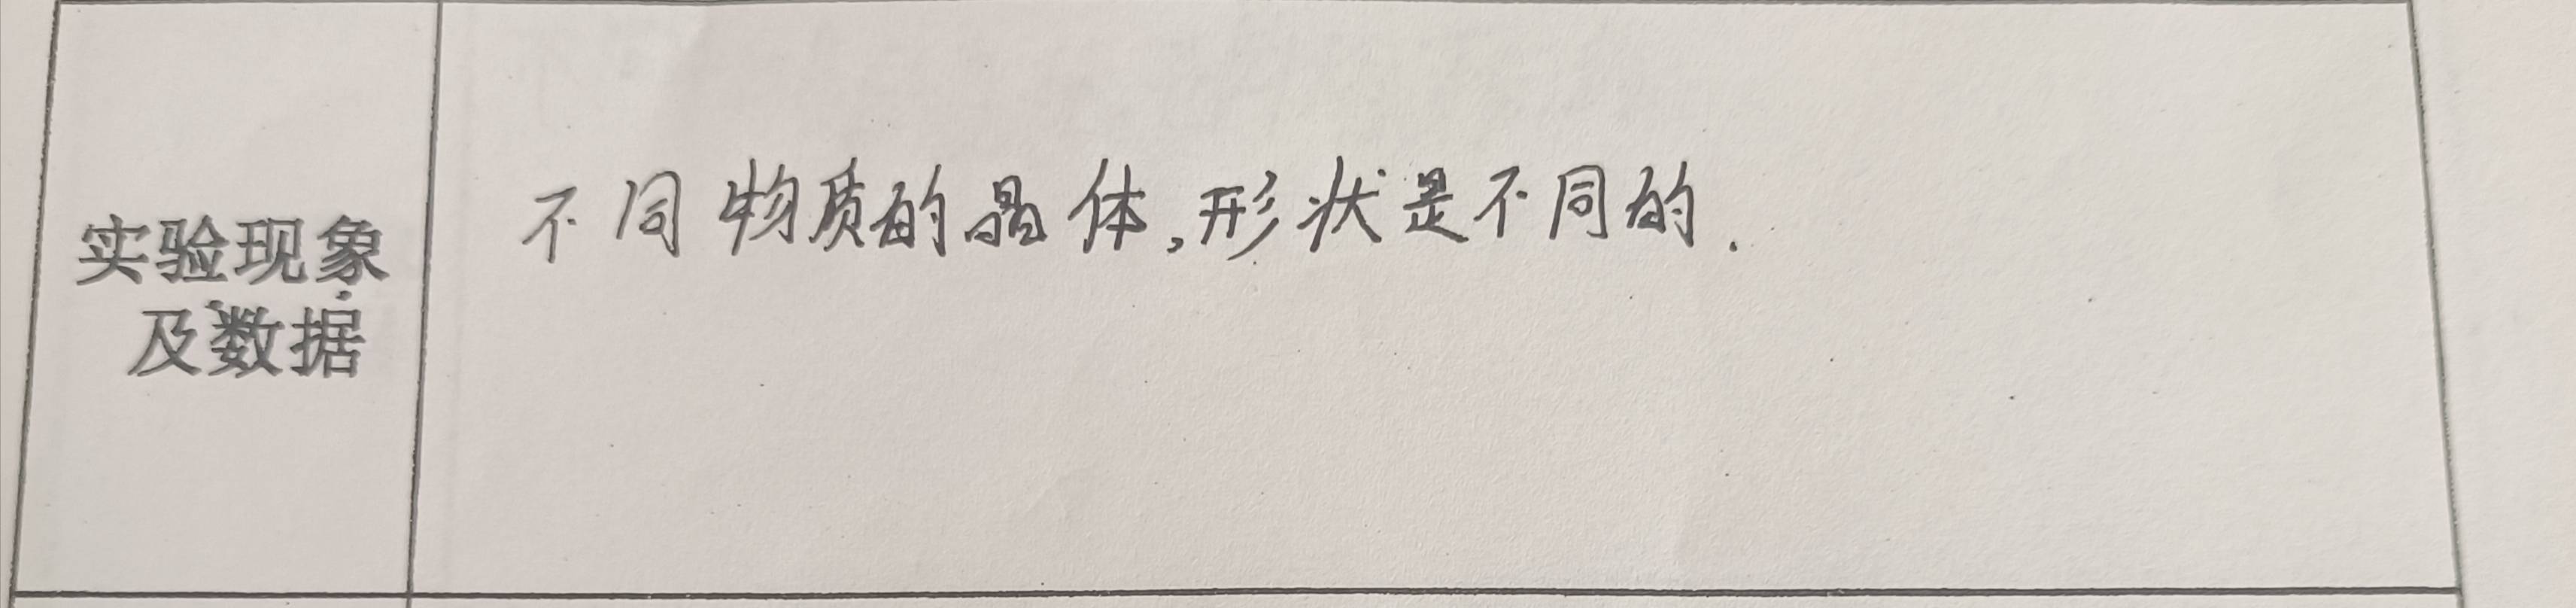 不同物质的晶体,形状是不同的.
实验现象
及数据